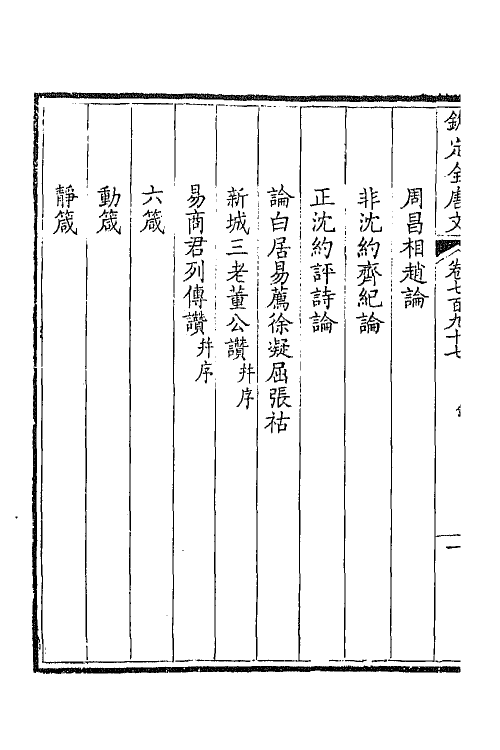 欽定全唐文
卷七百九十七
一
周昌相趙論
非沈約齊紀論
正沈約評詩論
論白居易薦徐凝屈張祜
新城三老董公讚并序
易商君列傳讚并序
六箴
動箴
靜箴